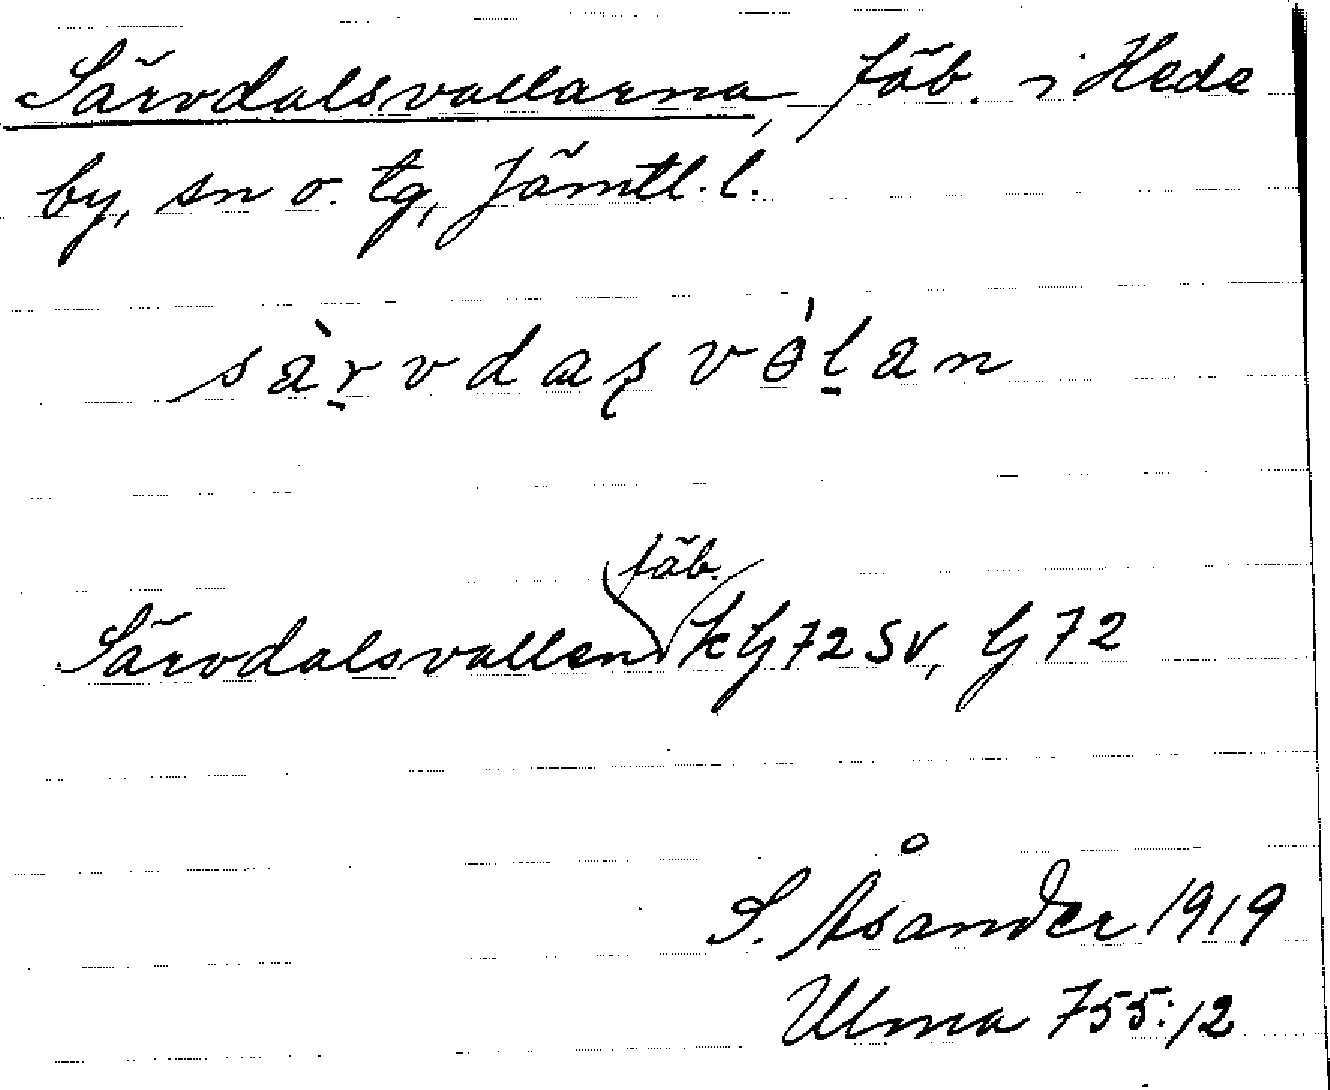 Särvdalsvallarna, fäb. i Hede
by, sn o. tg, Jämtl. l.
sàr̠vdaʂvɵ́l̠an
fäb.
Särvdalsvallen kG72SV, G72
S. Åsander 1919
Ulma 755:12